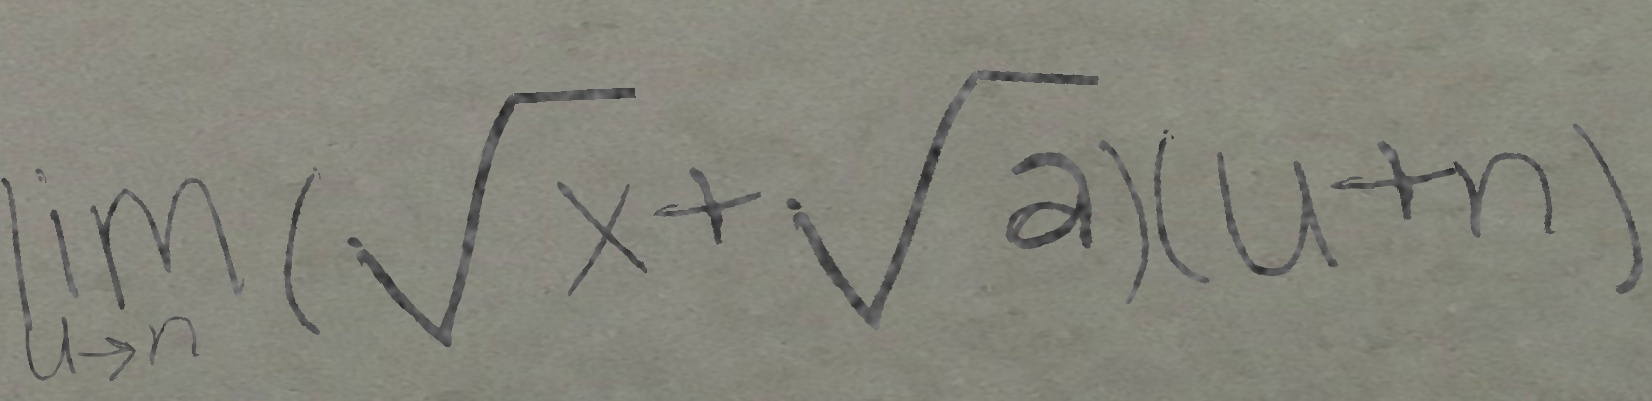 \lim_{u \to n} (\sqrt{x} + \sqrt{a})(u + n)